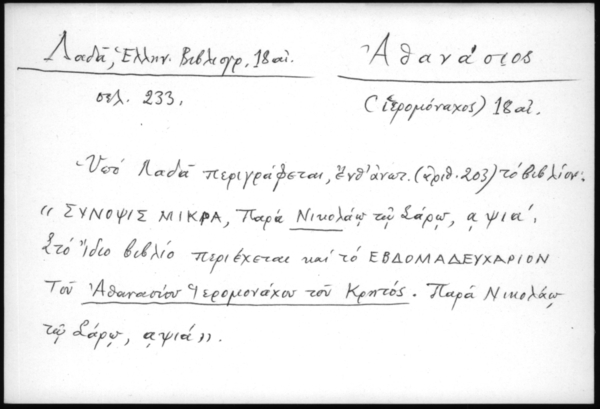 Λαδᾶ, Ἑλλην. Βιβλιογρ. 18αἰ.
σελ. 233.
Ἀθανάσιος
(ἱερομόναχος) 18αἰ.
Ὑπό Λαδᾶ περιγράφεται, ἔνθ' ἀνωτ. (ἀριθ. 203) τό βιβλίον:
"ΣΥΝΟΨΙΣ ΜΙΚΡΑ, Παρά Νικολάῳ τῷ Σάρῳ, ᾳψιά'.
Στό ἴδιο βιβλίο περιέχεται καί τό ΕΒΔΟΜΑΔΕΥΧΑΡΙΟΝ
Τοῦ Ἀθανασίου Ἱερομονάχου τοῦ Κρητός. Παρά Νικολάῳ
τῷ Σάρῳ, ᾳψιά".